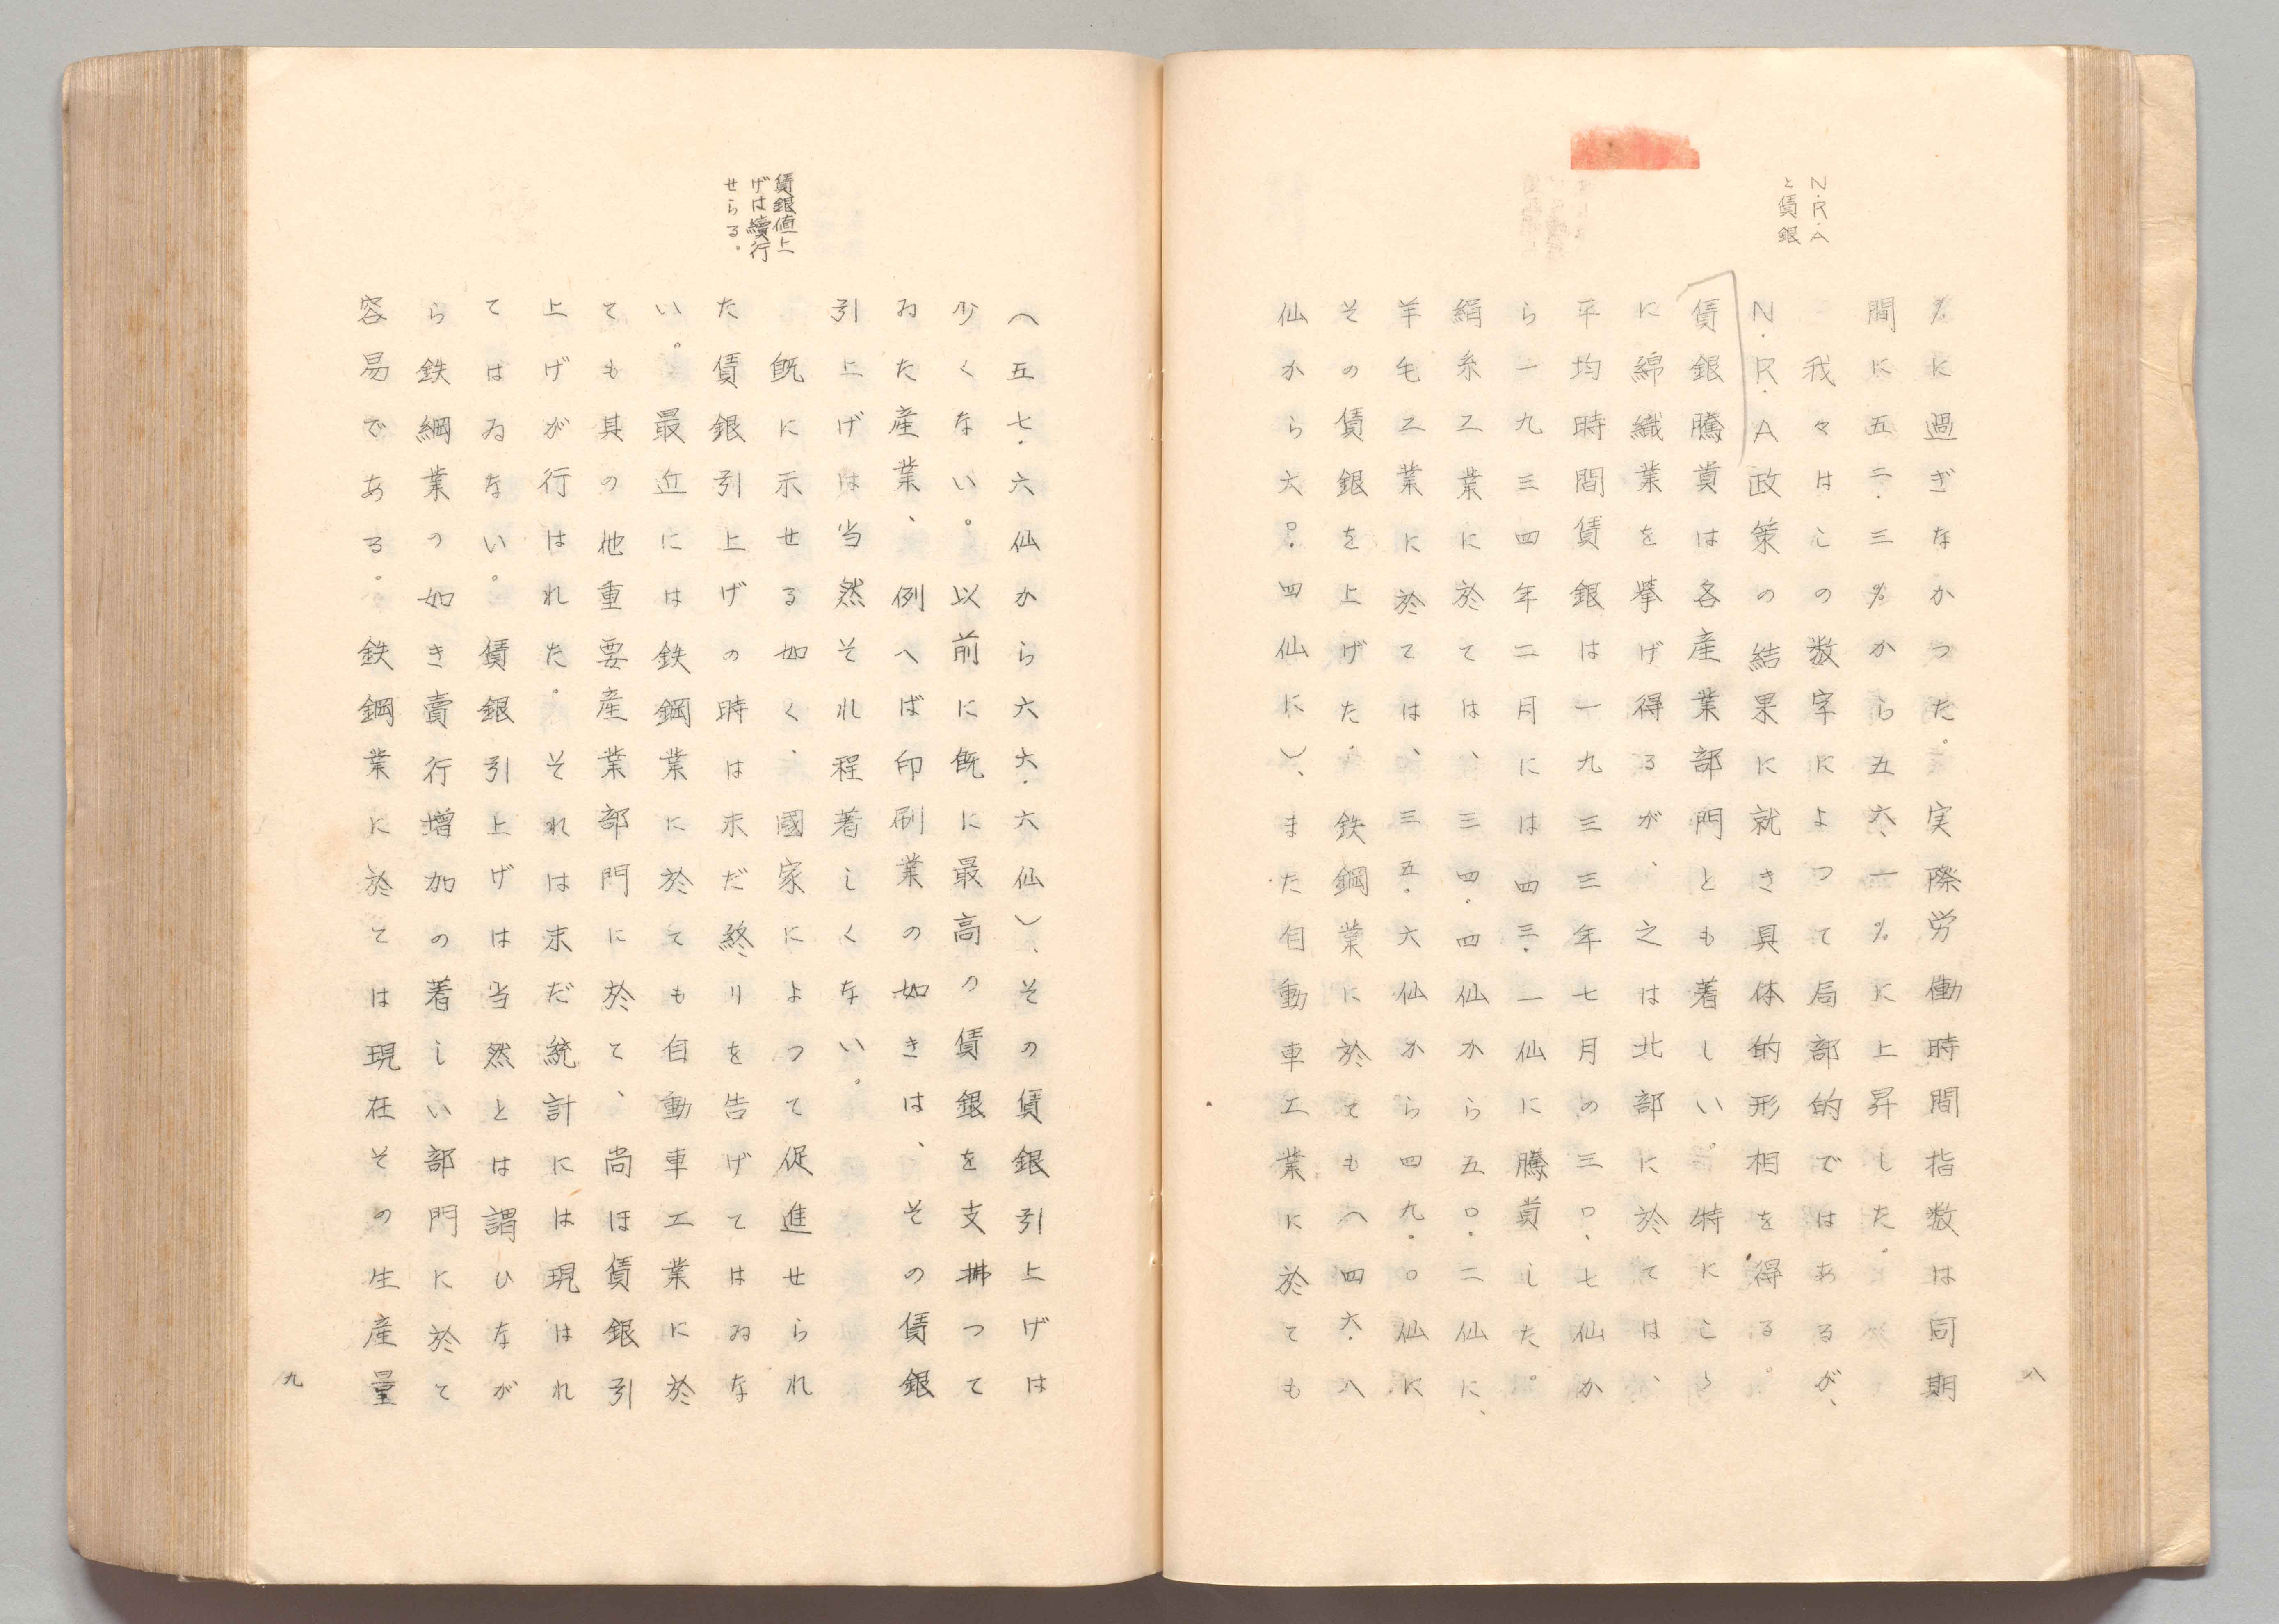 N.R.A
と賃銀
%に過ぎなかつた。実際労働時間指数は同期
間に五二.三%から五六.一%に上昇した。
我々はこの数字によつて局部的ではあるが、
N.R.A政策の結果に就き具体的形相を得る。
賃銀騰貴は各産業部門とも著しい。特にこゝ
に綿織業を挙げ得るが、之は北部に於ては、
平均時間賃銀は一九三三年七月の三〇、七仙か
ら一九三四年二月には四三.一仙に騰貴した。
絹糸工業に於ては、三四.四仙から五〇.二仙に、
羊毛工業に於ては、三五.六仙から四九.〇仙に
その賃銀を上げた.鉄鋼業に於ても(四六.八
仙から六〇.四仙に)、また自動車工業に於ても
八
賃銀値上
げは續行
せらる。
(五七.六仙から六六.六仙)、その賃銀引上げは
少くない。以前に既に最高の賃銀を支拂つて
ゐた産業、例へば印刷業の如きは、その賃銀
引上げは当然それ程著しくない。
既に示せる如く、國家によつて促進せられ
た賃銀引上げの時は末だ終りを告げてはゐな
い。最近には鉄鋼業に於ても自動車工業に於
ても其の他重要産業部門に於て、尚ほ賃銀引
上げが行はれた。それは末だ統計には現はれ
てはゐない。賃銀引上げは当然とは謂ひなが
ら鉄綱業の如き賣行増加の著しい部門に於て
容易である.鉄鋼業に於ては現在その生産量
九